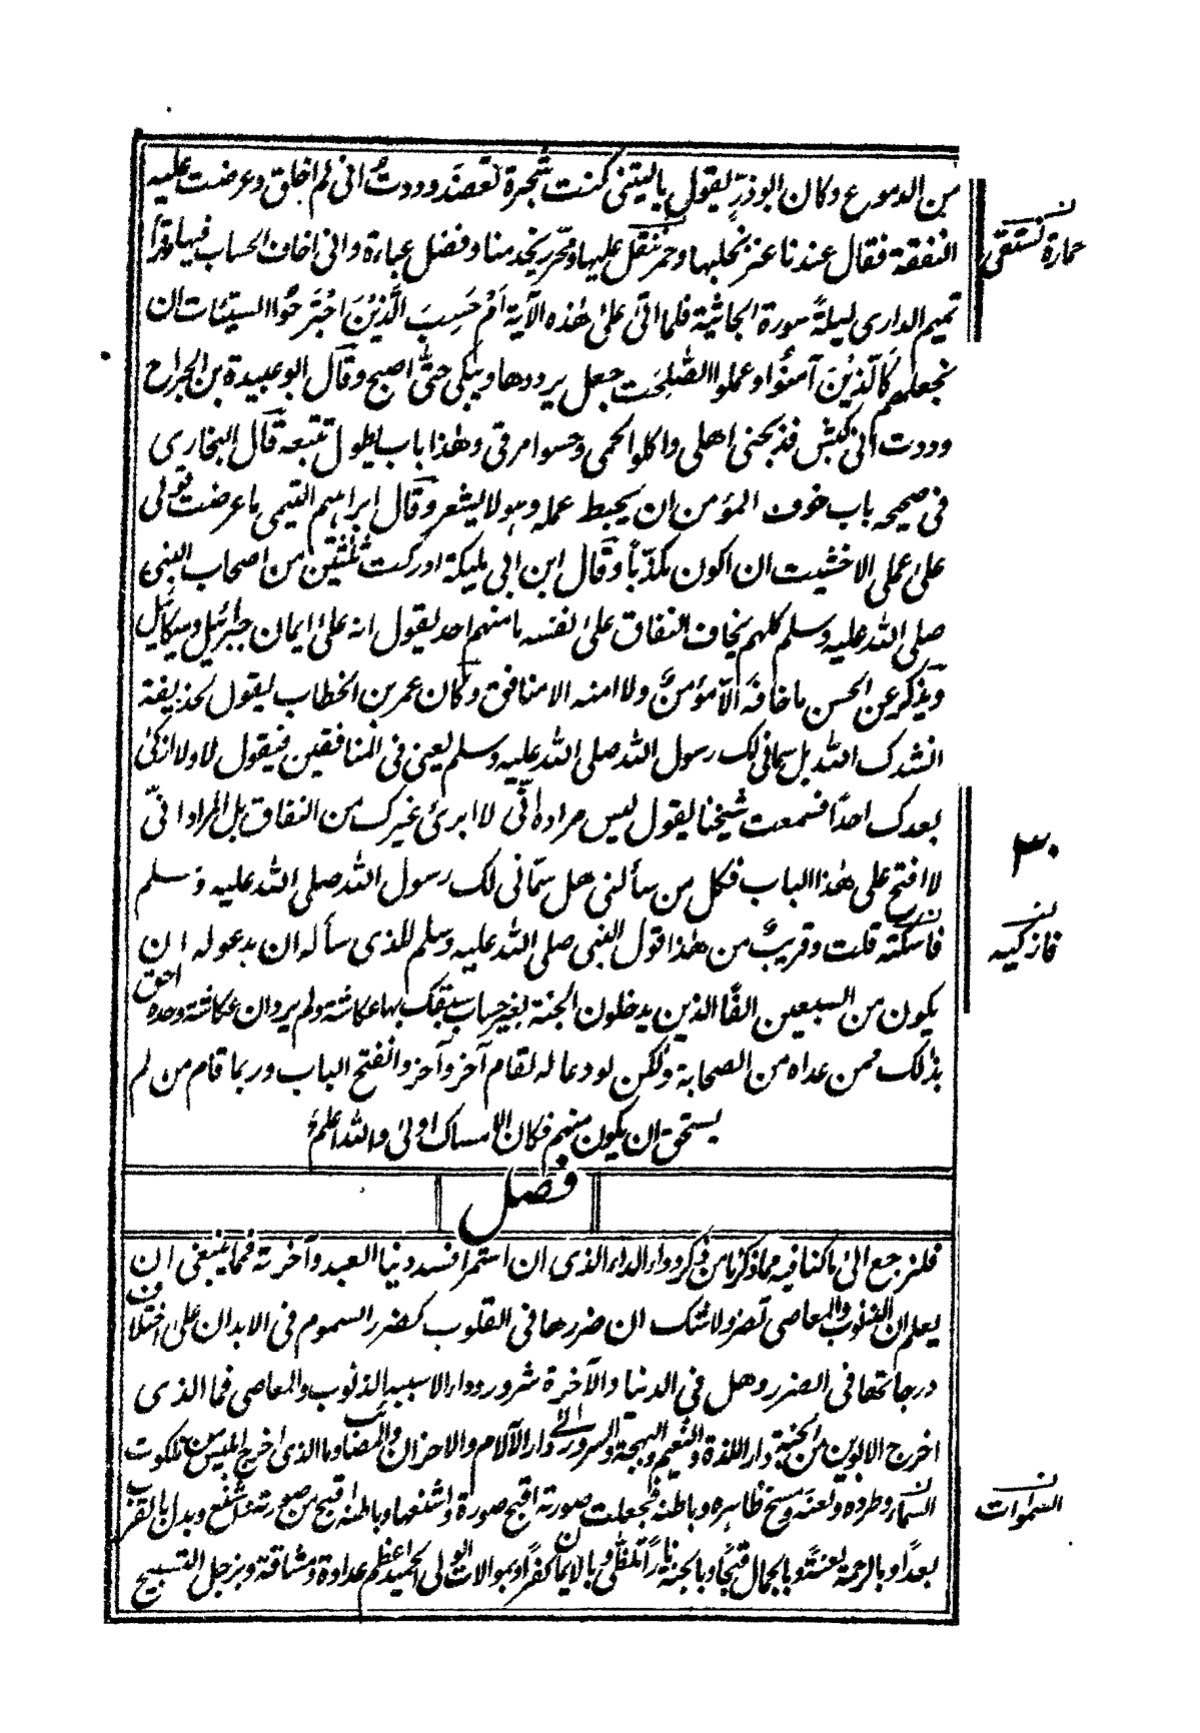 من الدموع وكان ابوذر يقول ياليتني كنت شجرة تعضد ووددت اني لم اخلق وعرضت عليه
النفقة فقال عندنا عنز نحلبها وحمر ننقل عليها ومحرر يخدمنا وفضل عباءة واني اخاف الحساب فيها وقرأ
تميم الداري ليلةً سورة الجاثية فلما اتى على هذه الآية اَمْ حَسِبَ الَّذِيْنَ اجْتَرَحُوا السيئات ان
نجعلهم كَالَّذِيْنَ آمنُوا وعملوا الصّٰلِحٰت جعل يرددها ويبكي حتّى اصبح وقال ابو عبيدة بن الجراح
وددت اني كبش فذبحني اهلي واكلوا لحمي وحسوا مرقي وهذا باب يطول تتبعه قال البخاري
في صحيحه باب خوف المؤمن ان يحبط عمله وهو لا يشعر وقال ابراهيم التيمي ما عرضت قولي
على عملي الا خشيت ان اكون مكذّبا وقال ابن ابي مليكة ادركت ثلثين من اصحاب النبي
صلى الله عليه وسلم كلهم يخاف النفاق على نفسه ما منهم احد يقول انه على ايمان جبرئيل وميكائيل
ويذكر عن الحسن ما خافه الا مؤمنٌ ولا امنه الا منافق وكان عمر بن الخطاب يقول لحذيفة
انشدك الله هل سماني لك رسول الله صلى الله عليه وسلم يعني في المنافقين فيقول لا ولا ازكى
بعدك احدًا فسمعت شيخنا يقول ليس مراده انّي لا ابرئ غيرك من النفاق بل المراد انّي
لا افتح علي هذا الباب فكل من سألني هل سمّاني لك رسول الله صلى الله عليه وسلم
فاسكته قلت وقريبٌ من هذا قول النبي صلى الله عليه وسلم للذي سأله ان يدعو له ان
يكون من السبعين الفًا الذين يدخلون الجنة بغير حساب سبقك بها عكاشة ولم يرد ان عكاشة وحده احق
بذلك ممن عداه من الصحابة ولكن لو دعا له لقام آخر وآخر وانفتح الباب وربما قام من لم
يستحق ان يكون منهم فكان الامساك اولى والله اعلم
فصل
فلنرجع الى ما كنا فيه مما ذكرنا من ذكر دواء الداء الذي ان استمر افسد دنيا العبد وآخرته فمما ينبغي ان
يعلم ان الذنوب والمعاصي تضر ولا شك ان ضررها في القلوب كضرر السموم في الابدان على اختلاف
درجاتها في الضرر وهل في الدنيا والآخرة شرور وداء الا سببه الذنوب والمعاصي فما الذي
اخرج الابوين من الجنة دار اللذة والنعيم والبهجة والسرور الى دار الآلام والاحزان والمصائب وما الذي اخرج ابليس من ملكوت
السماء وطرده ولعنه ومسخ ظاهره وباطنه فجعلت صورته اقبح صورة واشنعها وباطنه اقبح من صورته واشنع وبدل بالقرب
بعدًا وبالرحمة لعنةً وبالجمال قبحًا وبالجنة نارًا تلظى وبالايمان كفرًا وبموالات الولي الحميد اعظم عداوة ومشاقة وبزجل التسبيح
حمارة نستقي
٣٠
فازكيه
السموات